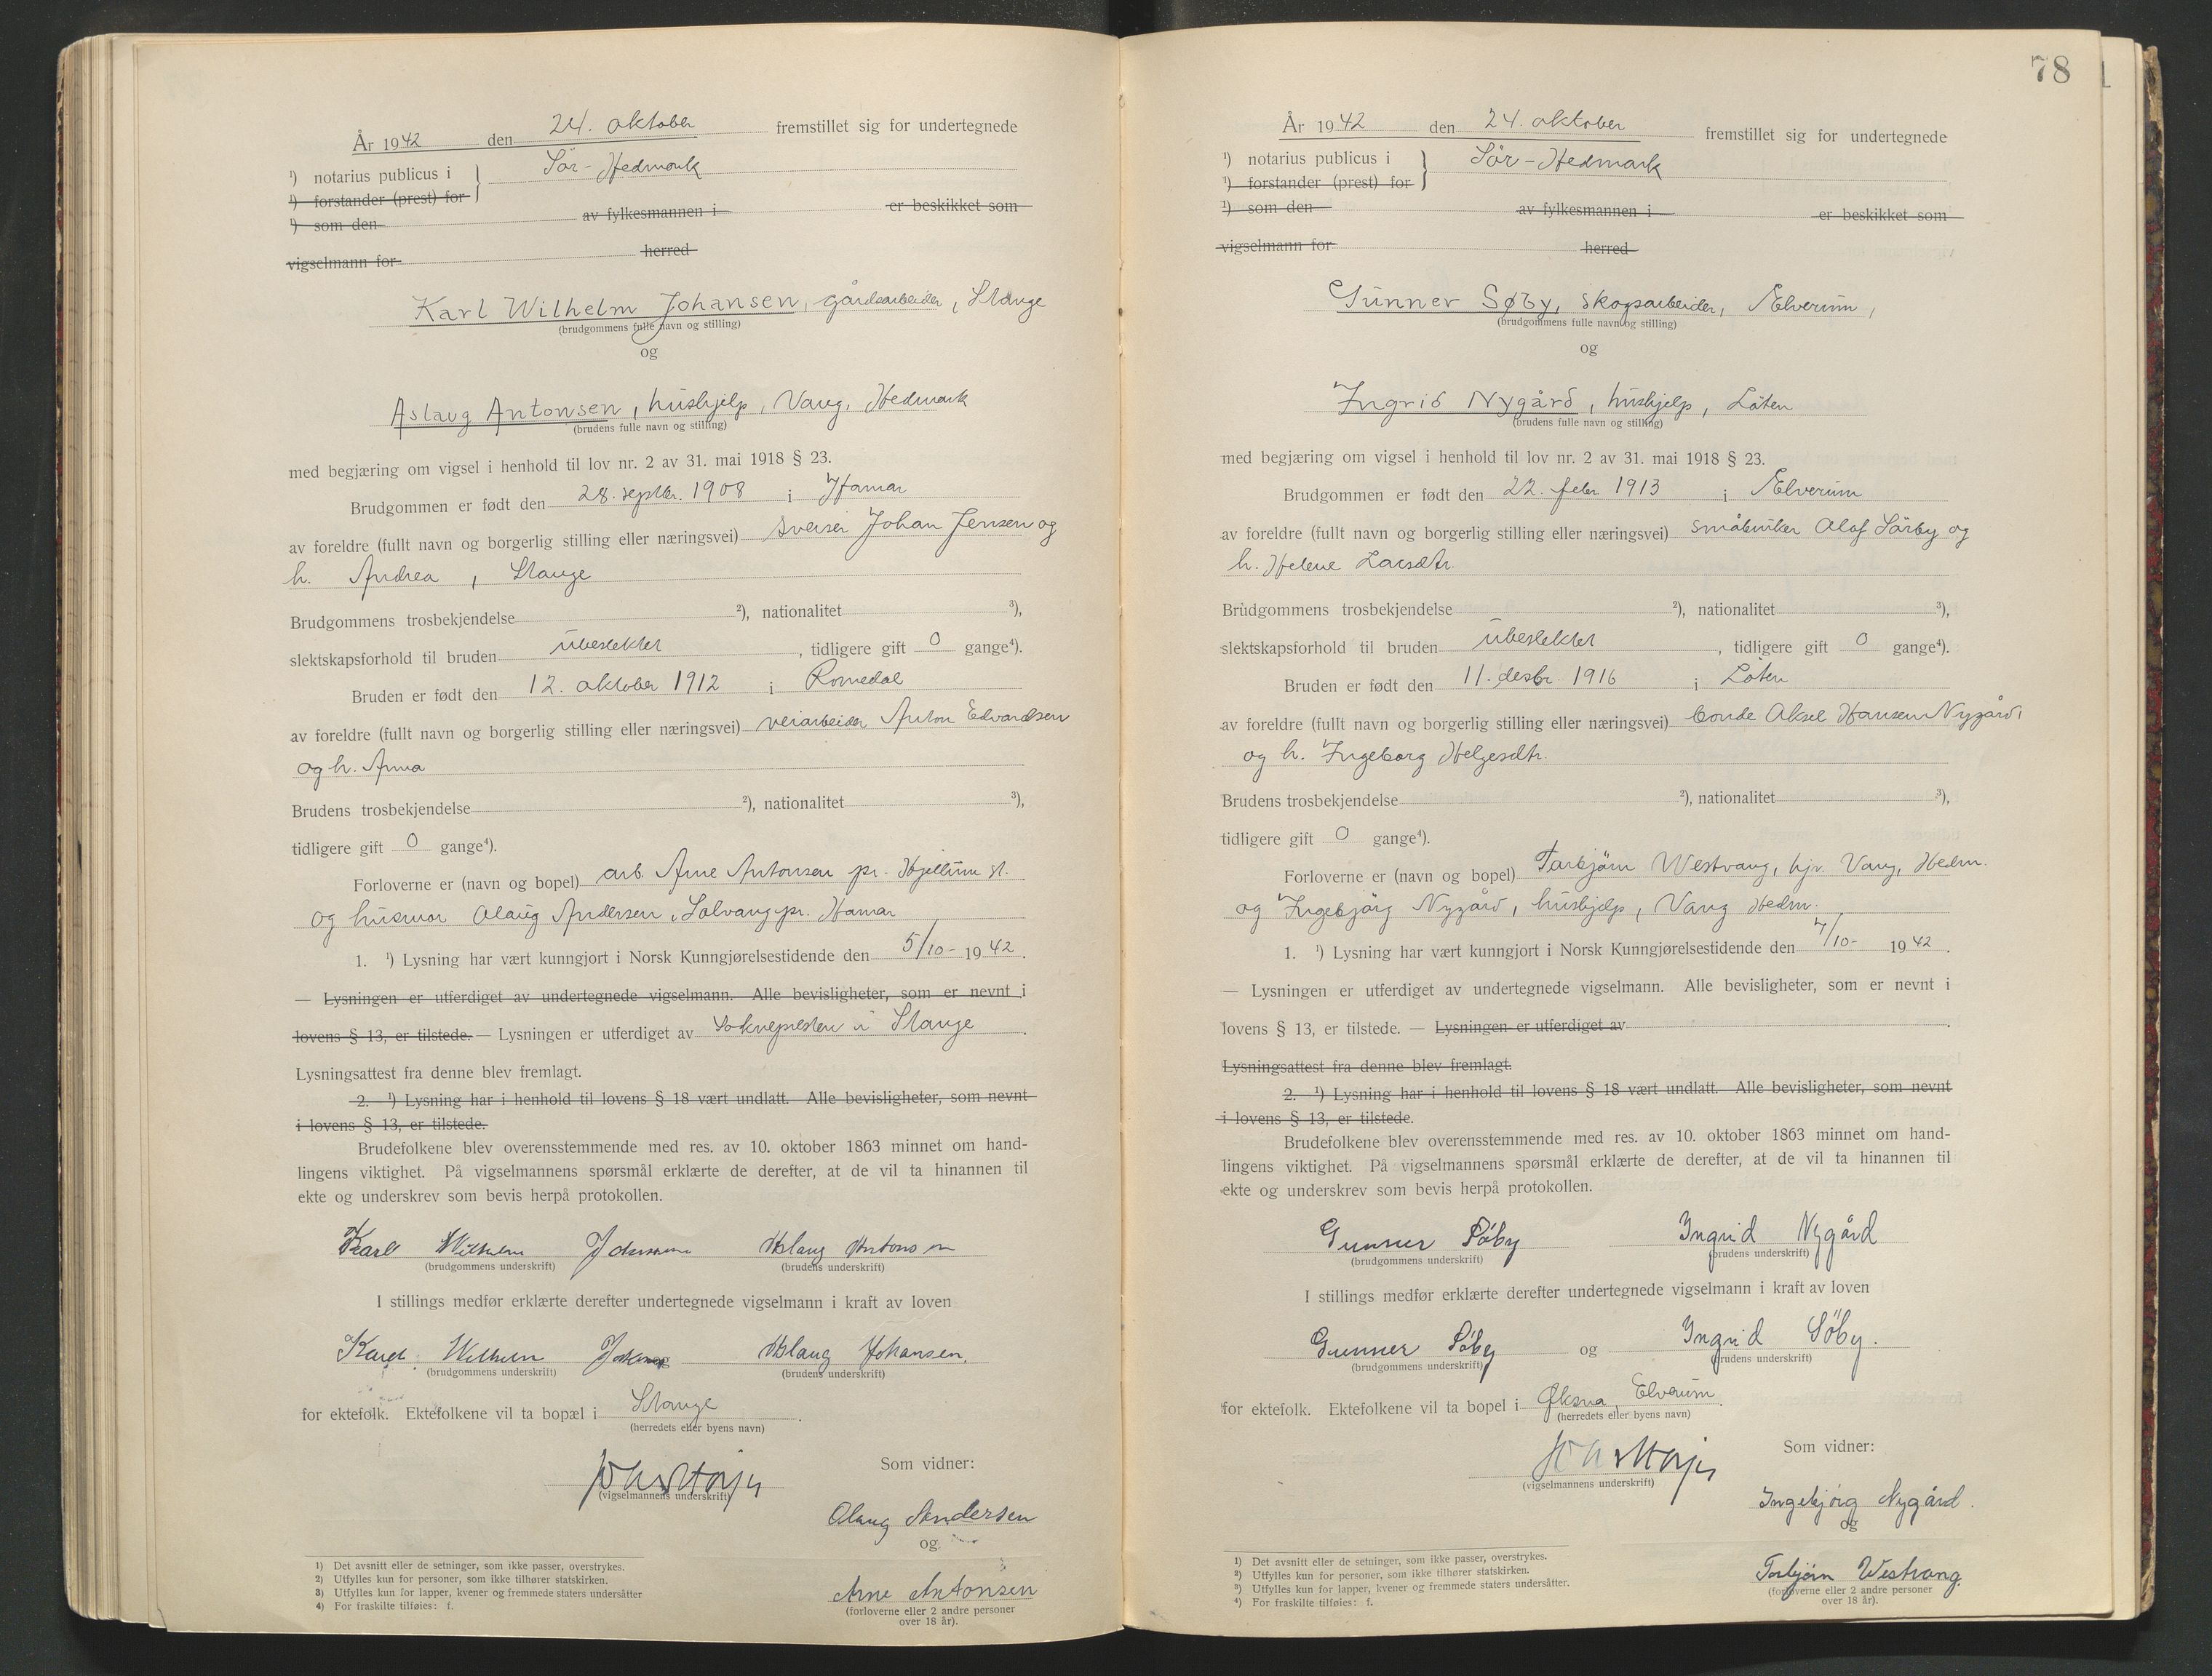 År 1942 den 24. oktober fremstillet sig for undertegnede
¹) notarius publicus i Sör-Hedmark
¹) forstander (prest) for
¹) som den av fylkesmannen i er beskikket som
vigselmann for herred
Karl Wilhelm Johansen, gårdsarbeider, Stange
(brudgommens fulle navn og stilling)
og
Aslaug Antonsen, hushjelp, Vang, Hedmark
(brudens fulle navn og stilling)
med begjæring om vigsel i henhold til lov nr. 2 av 31. mai 1918 § 23.
Brudgommen er født den 28. septbr. 1908 i Hamar
av foreldre (fullt navn og borgerlig stilling eller næringsvei) sveiser Johan Jensen og
h. Andrea, Stange
Brudgommens trosbekjendelse ²), nationalitet ³),
slektskapsforhold til bruden ubeslektet, tidligere gift 0 gange⁴).
Bruden er født den 12. oktober 1912 i Romedal
av foreldre (fullt navn og borgerlig stilling eller næringsvei) veiarbeider Anton Edvardsen
og h. Anna
Brudens trosbekjendelse ²), nationalitet ³),
tidligere gift 0 gange⁴).
Forloverne er (navn og bopel) arb. Arne Antonsen pr. Hjellum st.
og husmor Olaug Andersen, Solvang pr. Hamar
1. ¹) Lysning har vært kunngjort i Norsk Kunngjørelsestidende den 5/10- 1942.
— Lysningen er utferdiget av undertegnede vigselmann. Alle bevisligheter, som er nevnt i
lovens § 13, er tilstede. — Lysningen er utferdiget av Sokneprester i Stange.
Lysningsattest fra denne blev fremlagt.
2. ¹) Lysning har i henhold til lovens § 18 vært undlatt. Alle bevisligheter, som nevnt
i lovens § 13, er tilstede.
Brudefolkene blev overensstemmende med res. av 10. oktober 1863 minnet om hand-
lingens viktighet. På vigselmannens spørsmål erklærte de derefter, at de vil ta hinannen til
ekte og underskrev som bevis herpå protokollen.
Karl Wilhelm Johansen Aslaug Antonsen
(brudgommens underskrift) (brudens underskrift)
I stillings medfør erklærte derefter undertegnede vigselmann i kraft av loven
Karl Wilhelm Johansen og Aslaug Johansen.
(brudgommens underskrift) (brudens underskrift)
for ektefolk. Ektefolkene vil ta bopæl i Stange.
(herredets eller byens navn)
(vigselmannens underskrift)
Som vidner:
Olaug Andersen
og
Arne Antonsen
(forloverne eller 2 andre personer
over 18 år).
1) Det avsnitt eller de setninger, som ikke passer, overstrykes.
2) Utfylles kun for personer, som ikke tilhører statskirken.
3) Utfylles kun for lapper, kvener og fremmede staters undersåtter
4) For fraskilte tilføies: f.
78
År 1942 den 24. oktober fremstillet sig for undertegnede
¹) notarius publicus i Sör-Hedmark
¹) forstander (prest) for
¹) som den av fylkesmannen i er beskikket som
vigselmann for herred
Gunner Søby, skogsarbeider, Elverum,
(brudgommens fulle navn og stilling)
og
Ingrid Nygård, hushjelp, Löten
(brudens fulle navn og stilling)
med begjæring om vigsel i henhold til lov nr. 2 av 31. mai 1918 § 23.
Brudgommen er født den 22. febr 1913 i Elverum
av foreldre (fullt navn og borgerlig stilling eller næringsvei) småbruker Olaf Sörby og
h. Helene Larsdtr.
Brudgommens trosbekjendelse ²), nationalitet ³),
slektskapsforhold til bruden ubeslektet, tidligere gift 0 gange⁴).
Bruden er født den 11. desbr. 1916 i Löten
av foreldre (fullt navn og borgerlig stilling eller næringsvei) bonde Aksel Hansen Nygård,
og h. Ingeborg Helgesdtr.
Brudens trosbekjendelse ²), nationalitet ³),
tidligere gift 0 gange⁴).
Forloverne er (navn og bopel) Torbjörn Westvang, hjv. Vang, Hedm.
og Ingebjörg Nygård, hushjelp, Vang Hedm.
1. ¹) Lysning har vært kunngjort i Norsk Kunngjørelsestidende den 7/10- 1942.
— Lysningen er utferdiget av undertegnede vigselmann. Alle bevisligheter, som er nevnt i
lovens § 13, er tilstede. — Lysningen er utferdiget av .
Lysningsattest fra denne blev fremlagt.
2. ¹) Lysning har i henhold til lovens § 18 vært undlatt. Alle bevisligheter, som nevnt
i lovens § 13, er tilstede.
Brudefolkene blev overensstemmende med res. av 10. oktober 1863 minnet om hand-
lingens viktighet. På vigselmannens spørsmål erklærte de derefter, at de vil ta hinannen til
ekte og underskrev som bevis herpå protokollen.
Gunner Söby Ingrid Nygård
(brudgommens underskrift) (brudens underskrift)
I stillings medfør erklærte derefter undertegnede vigselmann i kraft av loven
Gunner Söby og Ingrid Söby.
(brudgommens underskrift) (brudens underskrift)
for ektefolk. Ektefolkene vil ta bopel i Øksna, Elverum.
(herredets eller byens navn)
(vigselmannens underskrift)
Som vidner:
Ingebjörg Nygård.
og
Torbjörn Westvang.
(forloverne eller 2 andre personer
over 18 år).
1) Det avsnitt eller de setninger, som ikke passer, overstrykes.
2) Utfylles kun for personer, som ikke tilhører statskirken.
3) Utfylles kun for lapper, kvener og fremmede staters undersåtter.
4) For fraskilte tilføies: f.